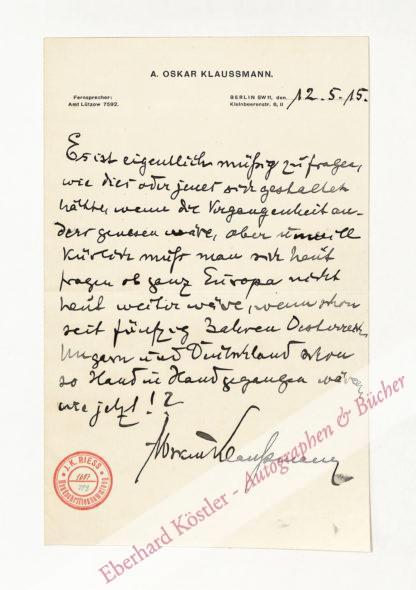 A. OSKAR KLAUSSMANN.
Fernsprecher:
Amt Lützow 7592.
BERLIN SW 11, den
Kleinbeerenstr. 6, II
12.5.15.
Es ist eigentlich müßig zu fragen,
wie dies oder jenes sich gestaltet
hätte, wenn die Vergangenheit an-
ders gewesen wäre, aber
muß man sich heut
fragen ob ganz Europa nicht
heut weiter wäre, wenn schon
seit fünfzig Jahren Oesterreich
Ungarn und Deutschland schon
so Hand in Hand gegangen wären
wie jetzt!?
AOskarKlaußmann
J. K. RIESS
1687
Handschriftensammlung
Eberhard Köstler - Autographen & Bücher